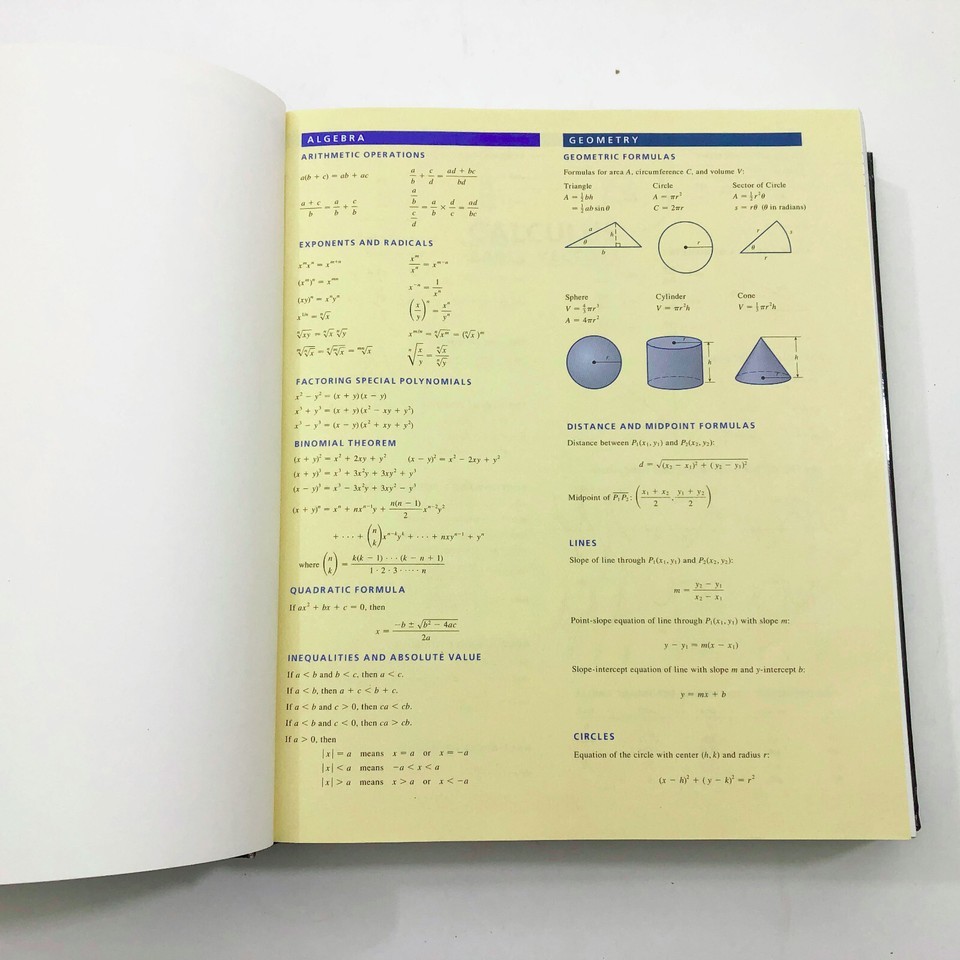 ALGEBRA
ARITHMETIC OPERATIONS
a(b + c) = ab + ac
a/b + c/d = (ad + bc)/bd
(a + c)/b = a/b + c/b
(a/b)/(c/d) = a/b × d/c = ad/bc
EXPONENTS AND RADICALS
xᵐxⁿ = xᵐ⁺ⁿ
xᵐ/xⁿ = xᵐ⁻ⁿ
(xᵐ)ⁿ = xᵐⁿ
x⁻ⁿ = 1/xⁿ
(xy)ⁿ = xⁿyⁿ
(x/y)ⁿ = xⁿ/yⁿ
x¹ᐟⁿ = ⁿ√x
xᵐᐟⁿ = ⁿ√xᵐ = (ⁿ√x)ᵐ
ⁿ√xy = ⁿ√x ⁿ√y
ⁿ√(x/y) = ⁿ√x/ⁿ√y
ᵐ√ⁿ√x = ⁿ√ᵐ√x = ᵐⁿ√x
FACTORING SPECIAL POLYNOMIALS
x² − y² = (x + y)(x − y)
x³ + y³ = (x + y)(x² − xy + y²)
x³ − y³ = (x − y)(x² + xy + y²)
BINOMIAL THEOREM
(x + y)² = x² + 2xy + y² (x − y)² = x² − 2xy + y²
(x + y)³ = x³ + 3x²y + 3xy² + y³
(x − y)³ = x³ − 3x²y + 3xy² − y³
(x + y)ⁿ = xⁿ + nxⁿ⁻¹y + n(n − 1)/2 xⁿ⁻²y²
+ · · · + (n k) xⁿ⁻ᵏyᵏ + · · · + nxyⁿ⁻¹ + yⁿ
where (n k) = k(k − 1) · · · (k − n + 1)/1 · 2 · 3 · · · · · n
QUADRATIC FORMULA
If ax² + bx + c = 0, then
x = (−b ± √(b² − 4ac))/2a
INEQUALITIES AND ABSOLUTE VALUE
If a < b and b < c, then a < c.
If a < b, then a + c < b + c.
If a < b and c > 0, then ca < cb.
If a < b and c < 0, then ca > cb.
If a > 0, then
|x| = a means x = a or x = −a
|x| < a means −a < x < a
|x| > a means x > a or x < −a
GEOMETRY
GEOMETRIC FORMULAS
Formulas for area A, circumference C, and volume V:
Triangle Circle Sector of Circle
A = ½bh A = πr² A = ½r²θ
= ½ab sin θ C = 2πr s = rθ (θ in radians)
a h θ b
r
r s θ r
Sphere Cylinder Cone
V = 4/3 πr³ V = πr²h V = ⅓πr²h
A = 4πr²
r
r h
h r
DISTANCE AND MIDPOINT FORMULAS
Distance between P₁(x₁, y₁) and P₂(x₂, y₂):
d = √((x₂ − x₁)² + (y₂ − y₁)²)
Midpoint of P₁P₂: ((x₁ + x₂)/2, (y₁ + y₂)/2)
LINES
Slope of line through P₁(x₁, y₁) and P₂(x₂, y₂):
m = (y₂ − y₁)/(x₂ − x₁)
Point-slope equation of line through P₁(x₁, y₁) with slope m:
y − y₁ = m(x − x₁)
Slope-intercept equation of line with slope m and y-intercept b:
y = mx + b
CIRCLES
Equation of the circle with center (h, k) and radius r:
(x − h)² + (y − k)² = r²